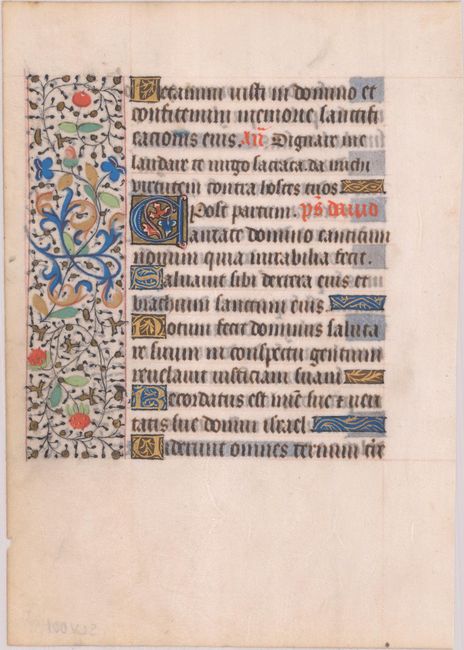 Letamini iusti in domino et
confitemini memorie sanctifi
cationis eius. Añ Dignare me
laudare te virgo sacrata. da michi
virtutem contra hostes tuos
A Post partum. ps david
Cantate domino canticum
novum quia mirabilia fecit.
Salvavit sibi dextera eius et
brachium sanctum eius.
Notum fecit dominus saluta
re suum in conspectu gentium
revelavit iusticiam suam
Recordatus est mie sue et veri
tatis sue domui israel
Viderunt omnes termini